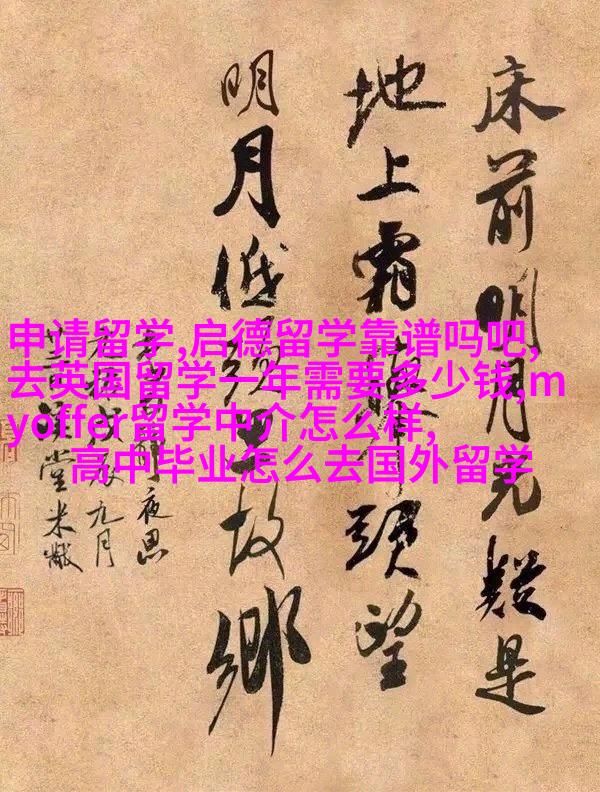 床前明月光疑是
地上霜舉頭望
明月低頭思故鄉
夜思
九月
堂米黻
申请留学,启德留学靠谱吗吧,
去英国留学一年需要多少钱,m
yoffer留学中介怎么样,
高中毕业怎么去国外留学